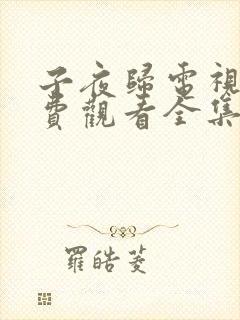 子夜歸電視
費觀看全集
羅皓菱